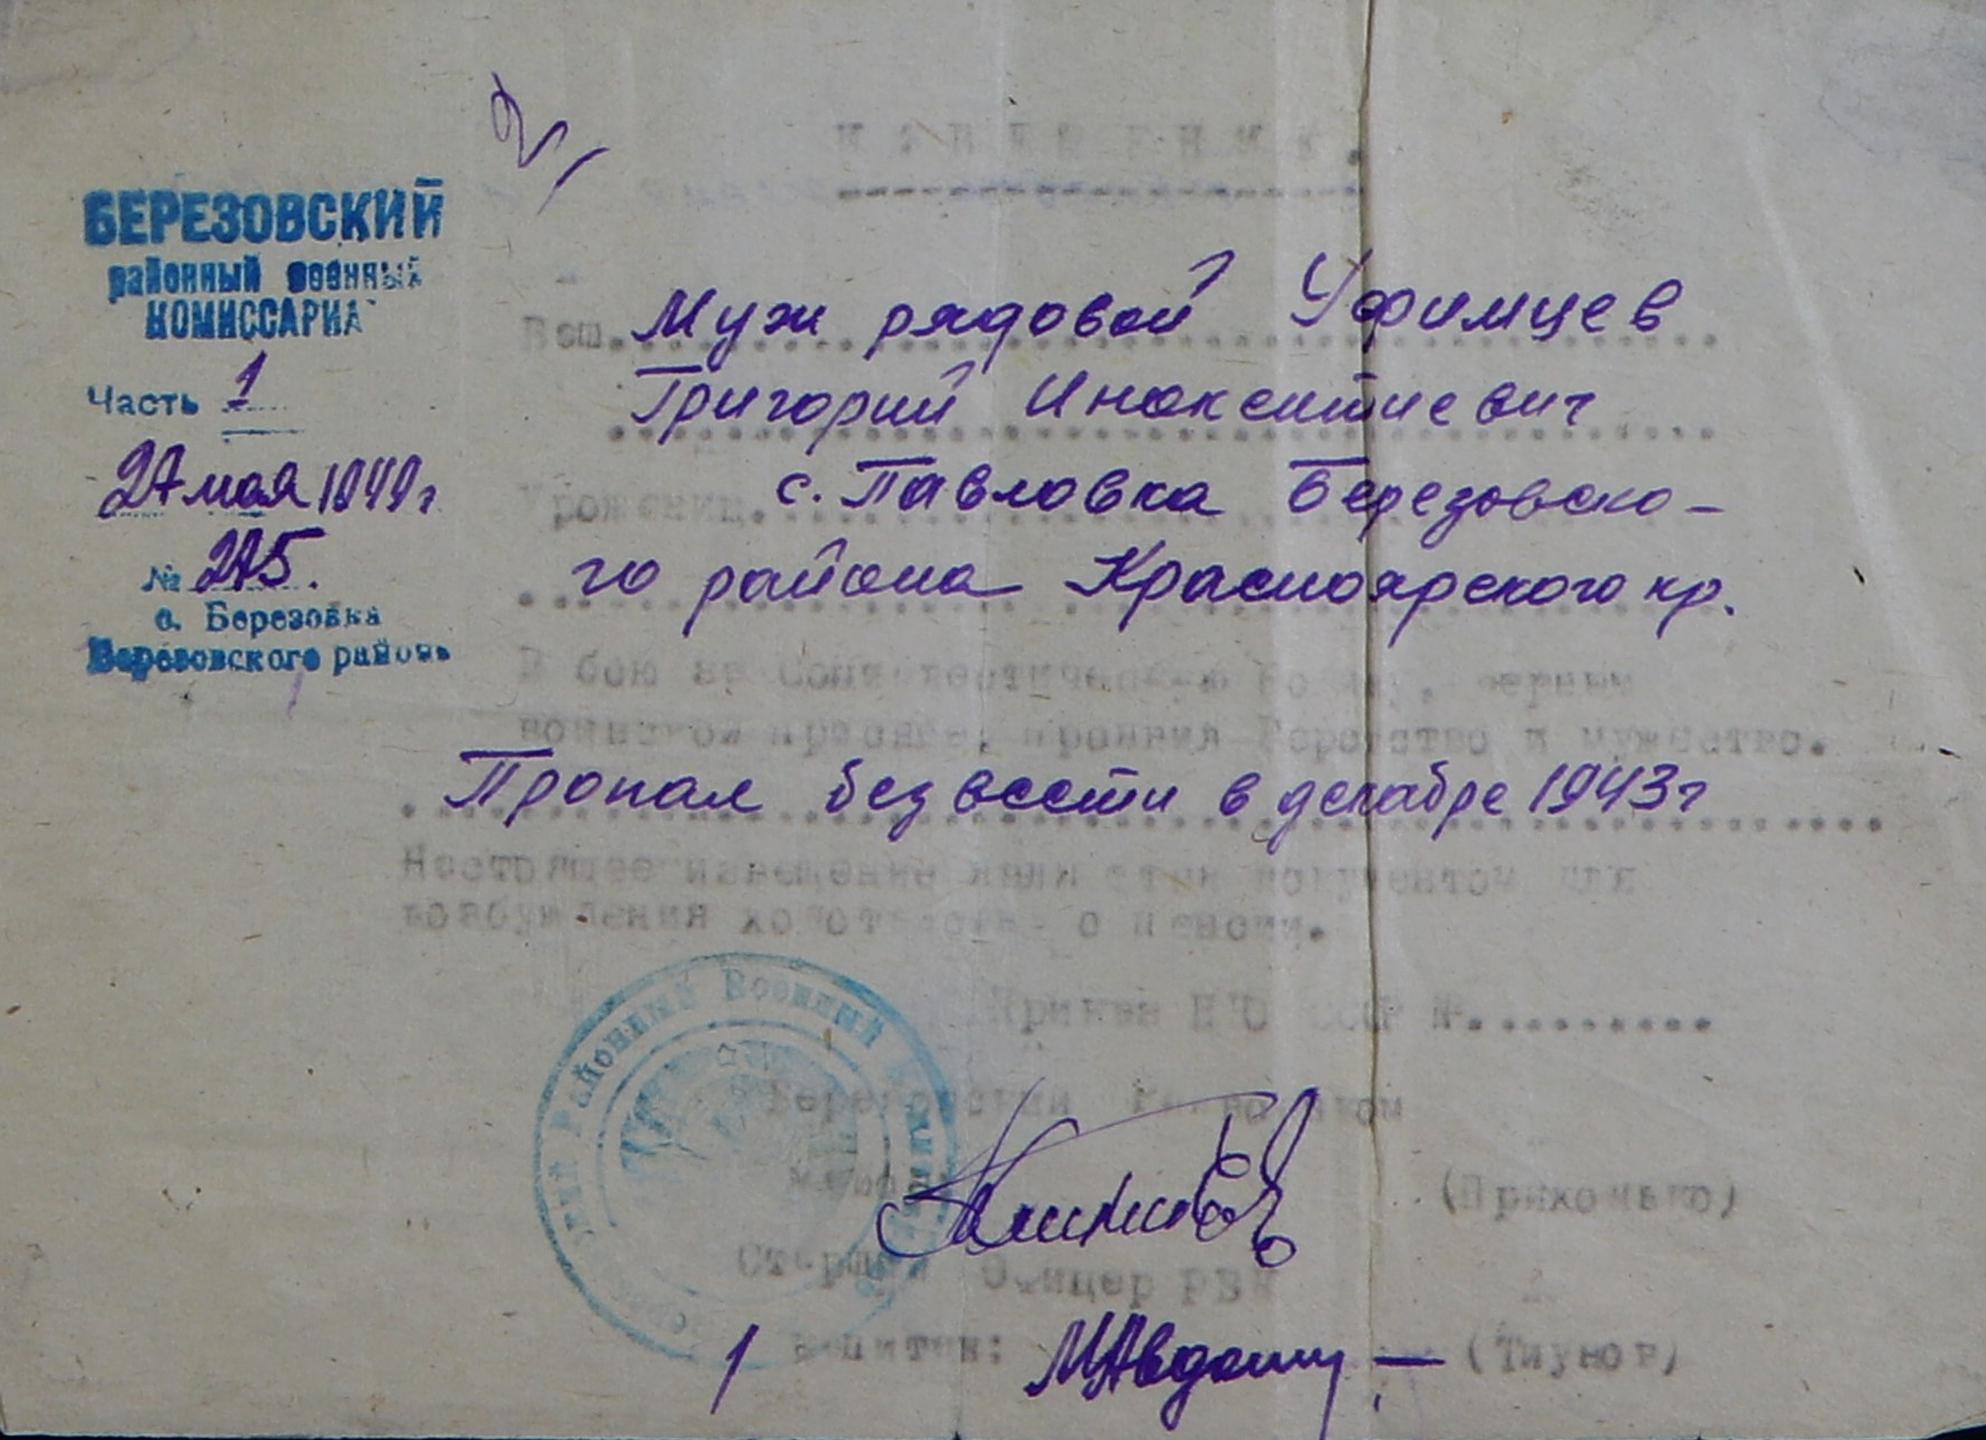 ИЗВЕЩЕНИЕ.
БЕРЕЗОВСКИЙ
районный военный
КОМИССАРИА
Часть 1
27 мая 1949 г
№ 275.
с. Березовка
Березовского района
Ваш. Муж рядовой Уфимцев
Григорий Инокентиевич
Урожениц. с. Павловка Березовско-
го района Красноярского кр.
В бою за Социалистическую Родину, верный
воинской присяге, проявил геройство и мужество.
Пропал без вести в декабре 1943 г
Настоящее извещение является документом для
возбуждения ходатайства о пенсии.
Приказ НКО СССР №..........
Березовский Райвоенком
Майор (Прихонько)
Старший Офицер РВК
Капитан: (Тиунов)
Районный Военный